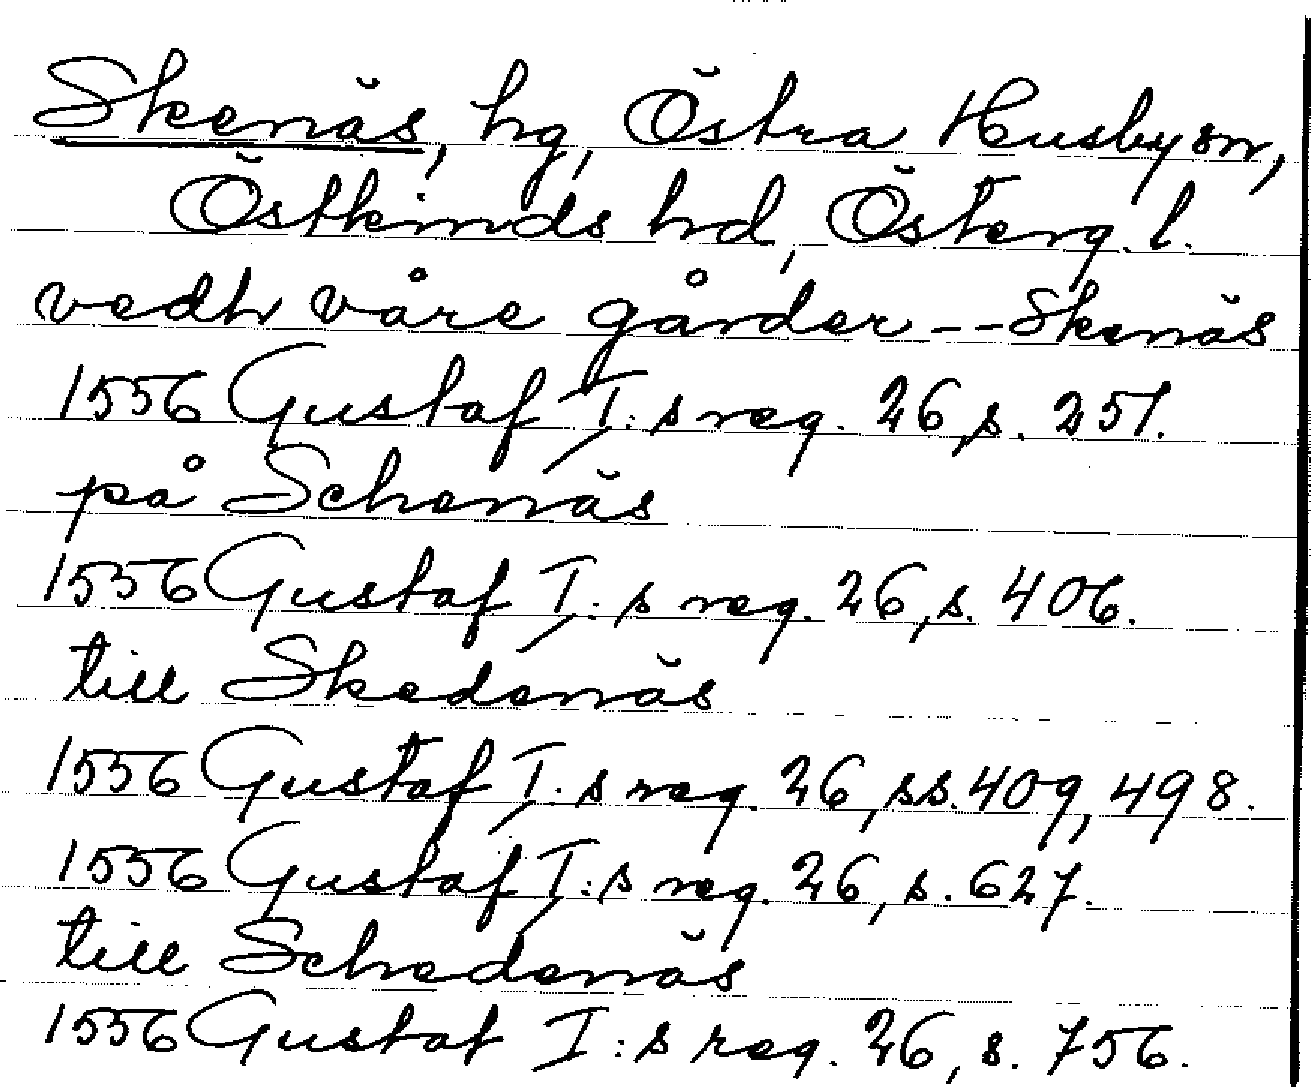 Skenäs, hg, Östra Husby sn,
Östkinds hd, Österg. l.
vedh våre gårder -- Skenäs
1556 Gustaf I:s reg. 26, s. 251.
på Schenäs
1556 Gustaf I:s reg. 26, s. 406.
till Skedenäs
1556 Gustaf I:s reg. 26, ss. 409, 498.
1556 Gustaf I:s reg. 26, s. 627.
till Schedenäs
1556 Gustaf I:s reg. 26, s. 756.